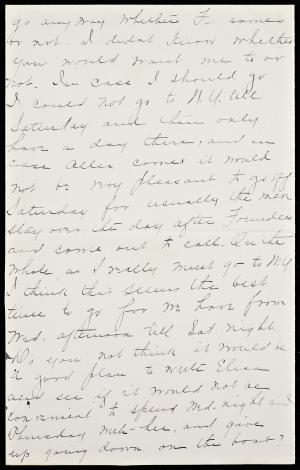 go anyway whether F. comes
or not. I didn't know whether
you would want me to or
not. In case I should go
I could not go to N.Y. till
Saturday and then only
have a day there, and in
case Allen comes it would
not be very pleasant to go off
Saturday for usually the men
stay over the day after Founders
and come out to call. On the
whole, as I really must go to N.Y.
I think this seems the best
time to go for we have from
Wed. afternoon till Sat. night.
Do you not think it would be
a good plan to write Elisa
and see if it would not be
convenient to spend Wed. night and
Thursday with her, and give
up going down on the boat?